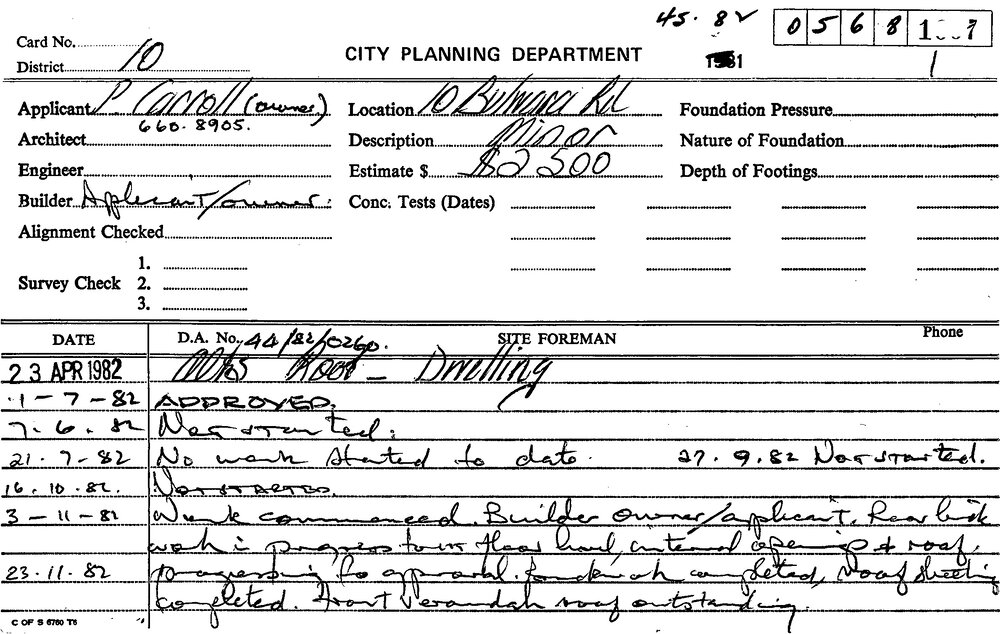 45. 82 0 5 6 8 1
Card No.
District 10
CITY PLANNING DEPARTMENT
1
Applicant P Carroll (owner.) Location 10 Bulwara Rd Foundation Pressure
660. 8905.
Architect Description Minor Nature of Foundation
Engineer Estimate $ $2 500 Depth of Footings
Builder Applicant/owner: Conc. Tests (Dates)
Alignment Checked
1.
Survey Check 2.
3.
DATE D.A. No. 44/82/0260. SITE FOREMAN Phone
23 APR 1982 Roof - Dwelling
1-7-82 APPROVED.
7.6.82 Not started:
21.7-82 No work started to date. 27.9.82 Not started.
16.10.82. NOT STARTED.
3-11-82 Work commenced. Builder owner/applicant. Rear brick
work in progress to floor level, internal openings & roof.
23.11.82 progressing to approval. completed, roof sheeting
completed. Front Verandah roof outstanding.
C OF S 6760 T6